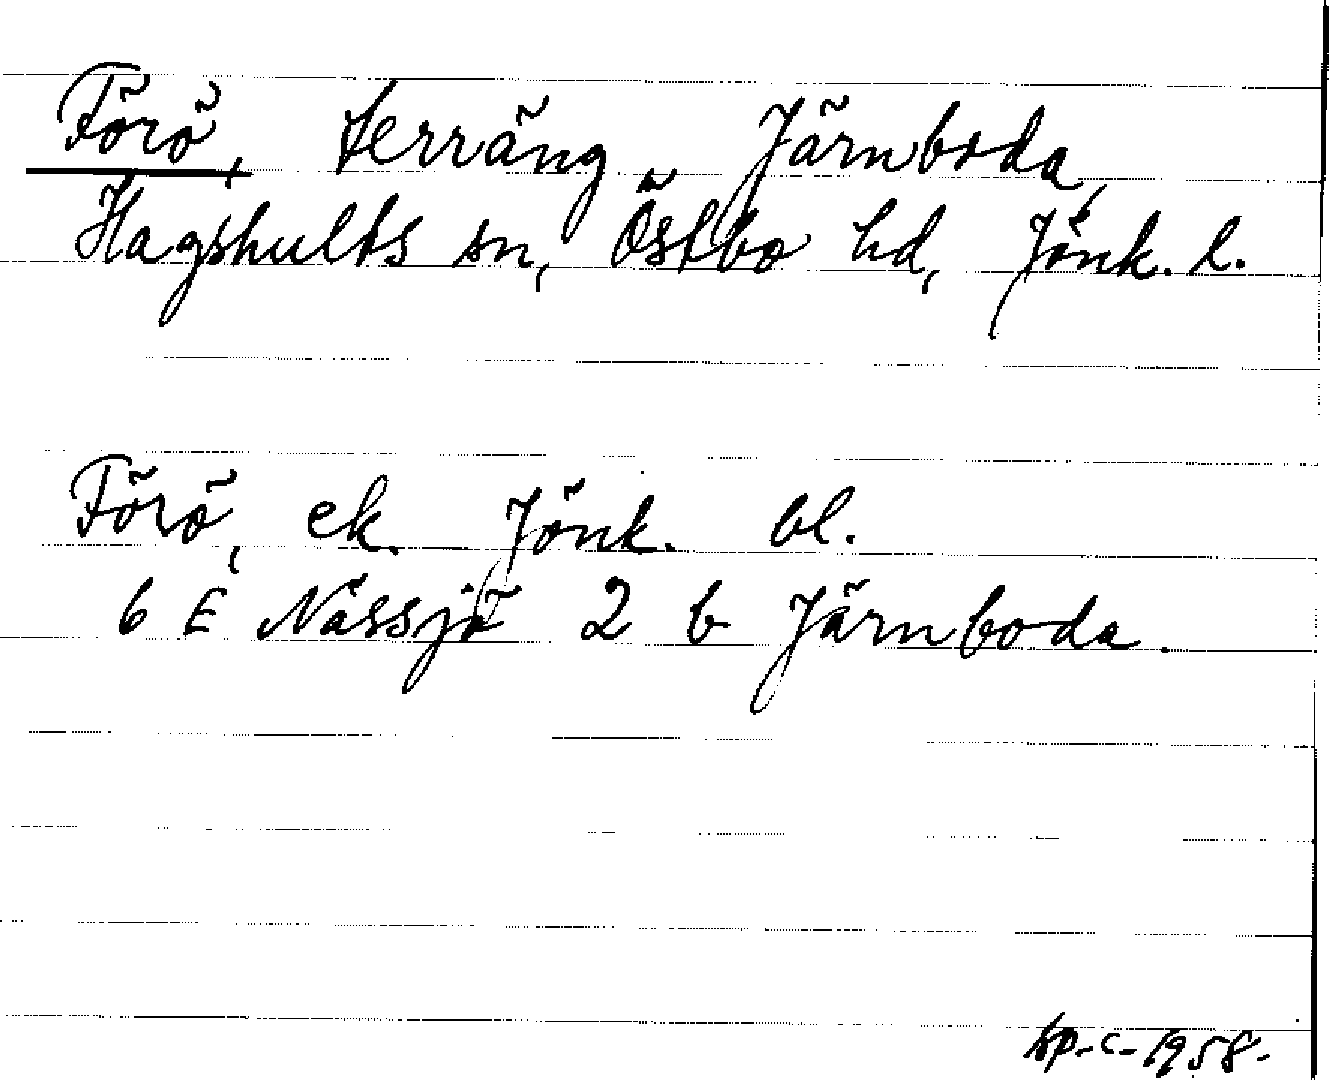 Förö, terräng, Järnboda,
Hagshults sn, Östbo hd, Jönk. l.
Förö, ek. Jönk. bl.
6 E Nässjö 2 b Järnboda.
1958.